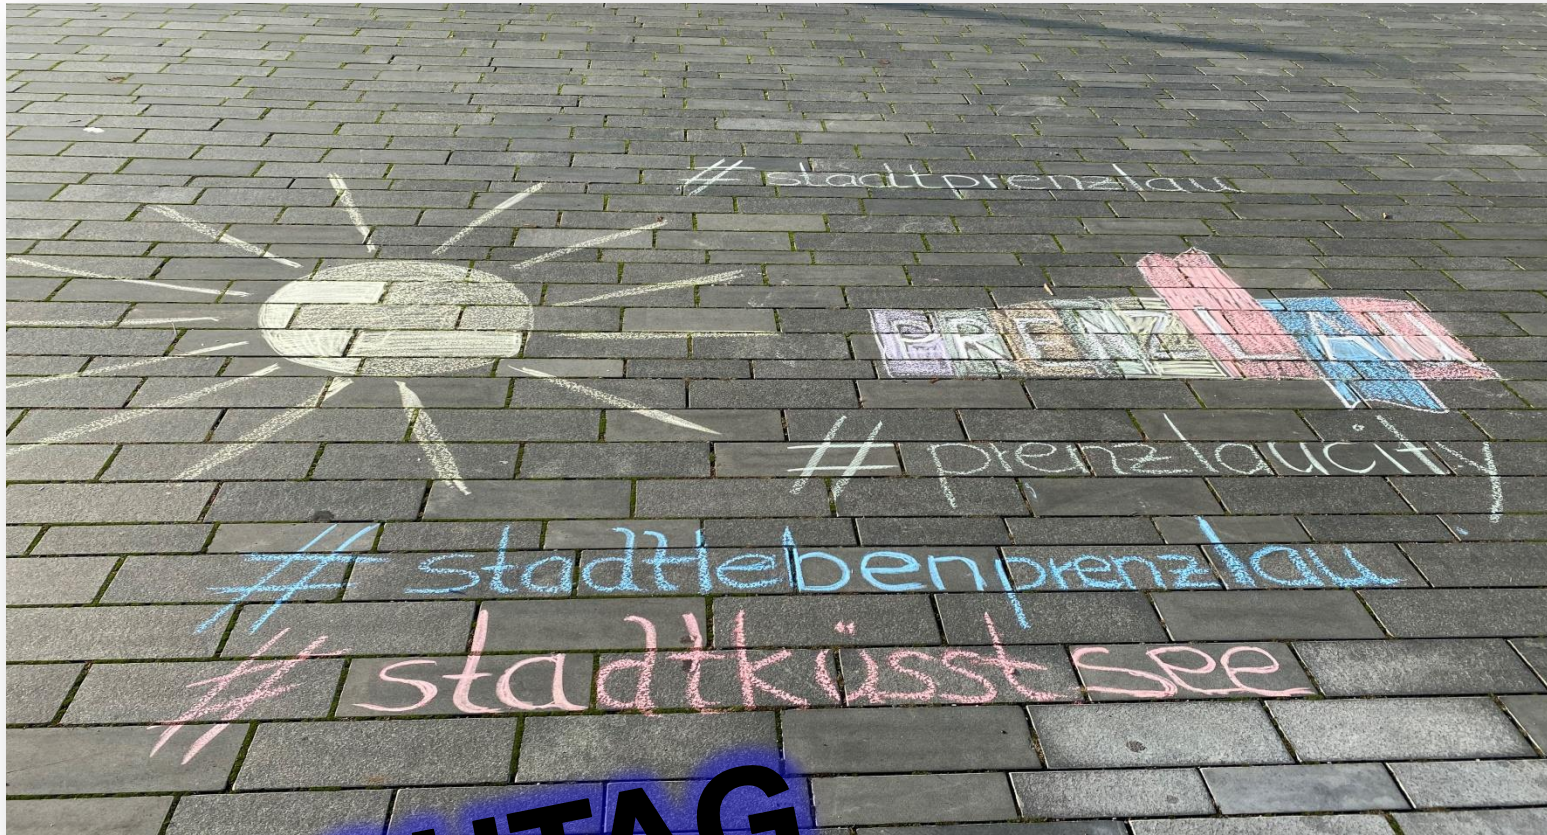 #stadtprenzlau
PRENZLAU
#prenzlaucity
#stadtlebenprenzlau
#stadtküsstsee